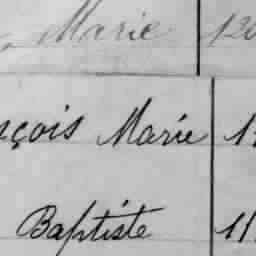 Marie 120
nçois Marie 1
Baptiste 11